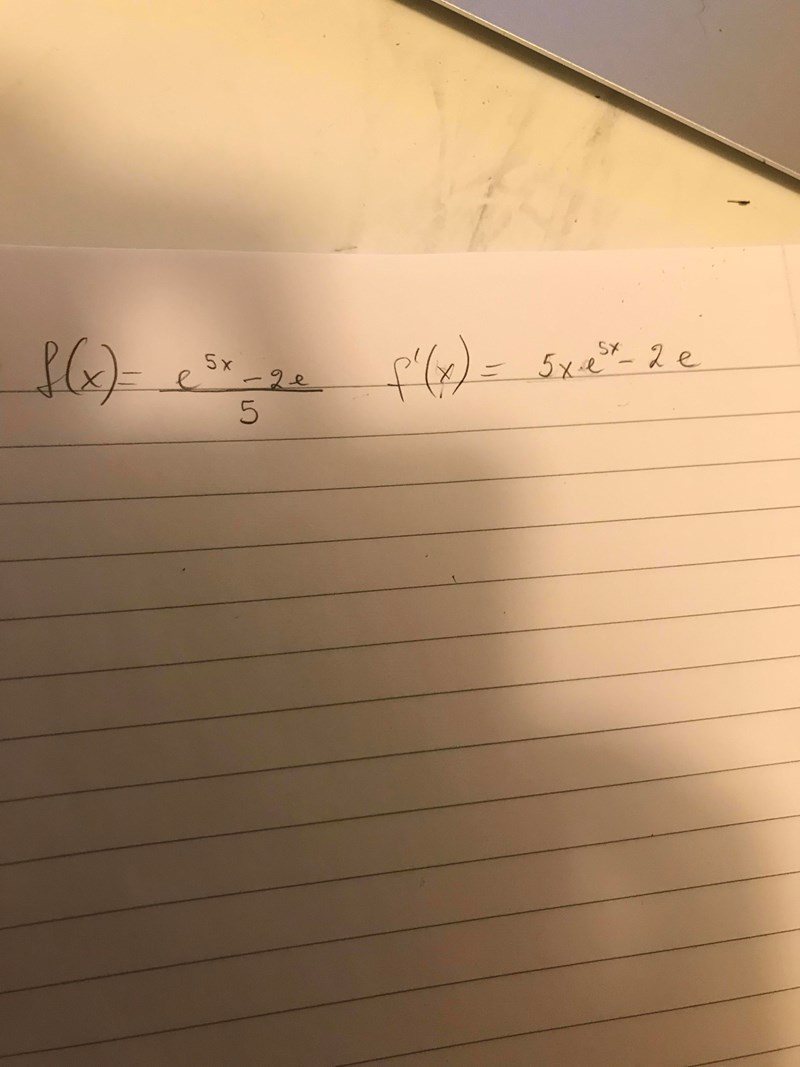 f(x)= e^{5x} - 2e / 5 f'(x) = 5x·e^{5x} - 2e